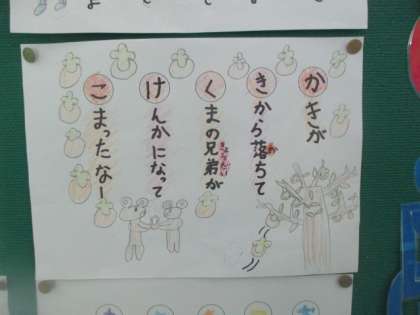 かきが
きから落ちて
くまの兄弟が
けんかになって
こまったなー